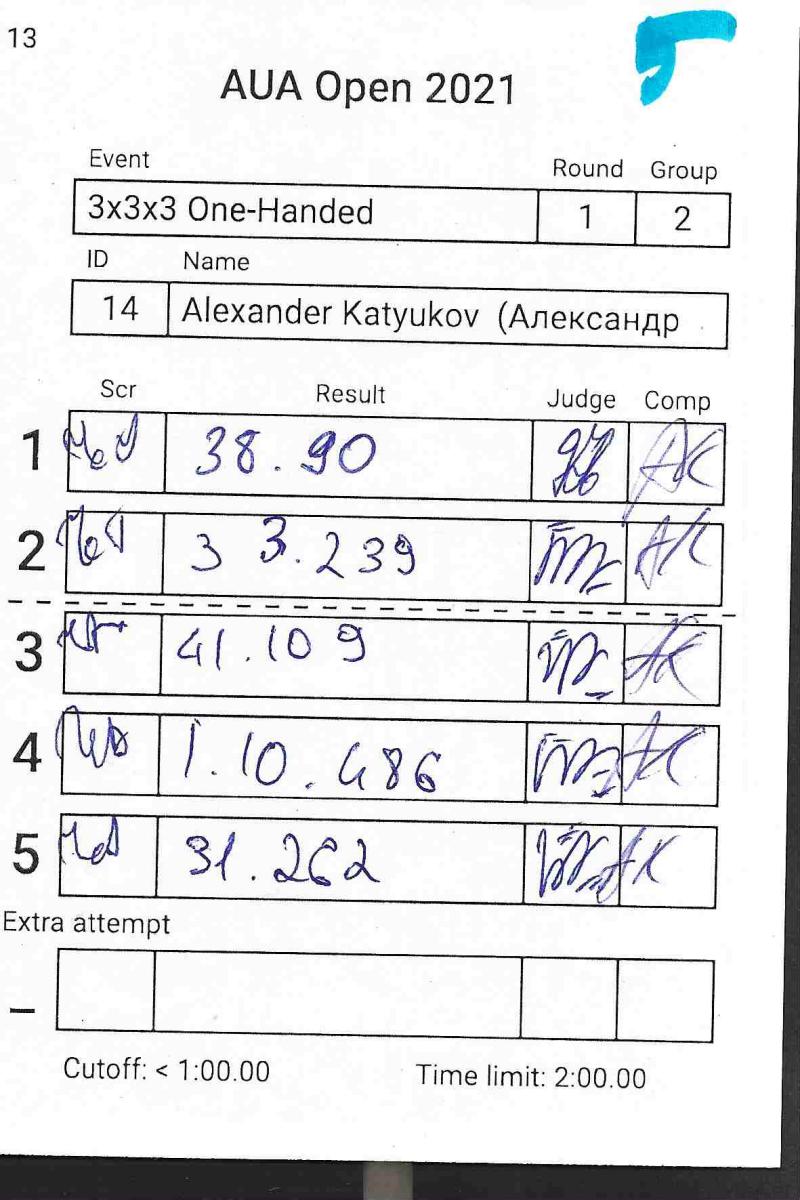 13
5
AUA Open 2021
Event Round Group
3x3x3 One-Handed 1 2
ID Name
14 Alexander Katyukov (Александр
Scr Result Judge Comp
1 38.90 AK
2 33.239 AK
3 41.109 AK
4 1.10.486 AK
5 31.262 AK
Extra attempt
_
Cutoff: < 1:00.00 Time limit: 2:00.00